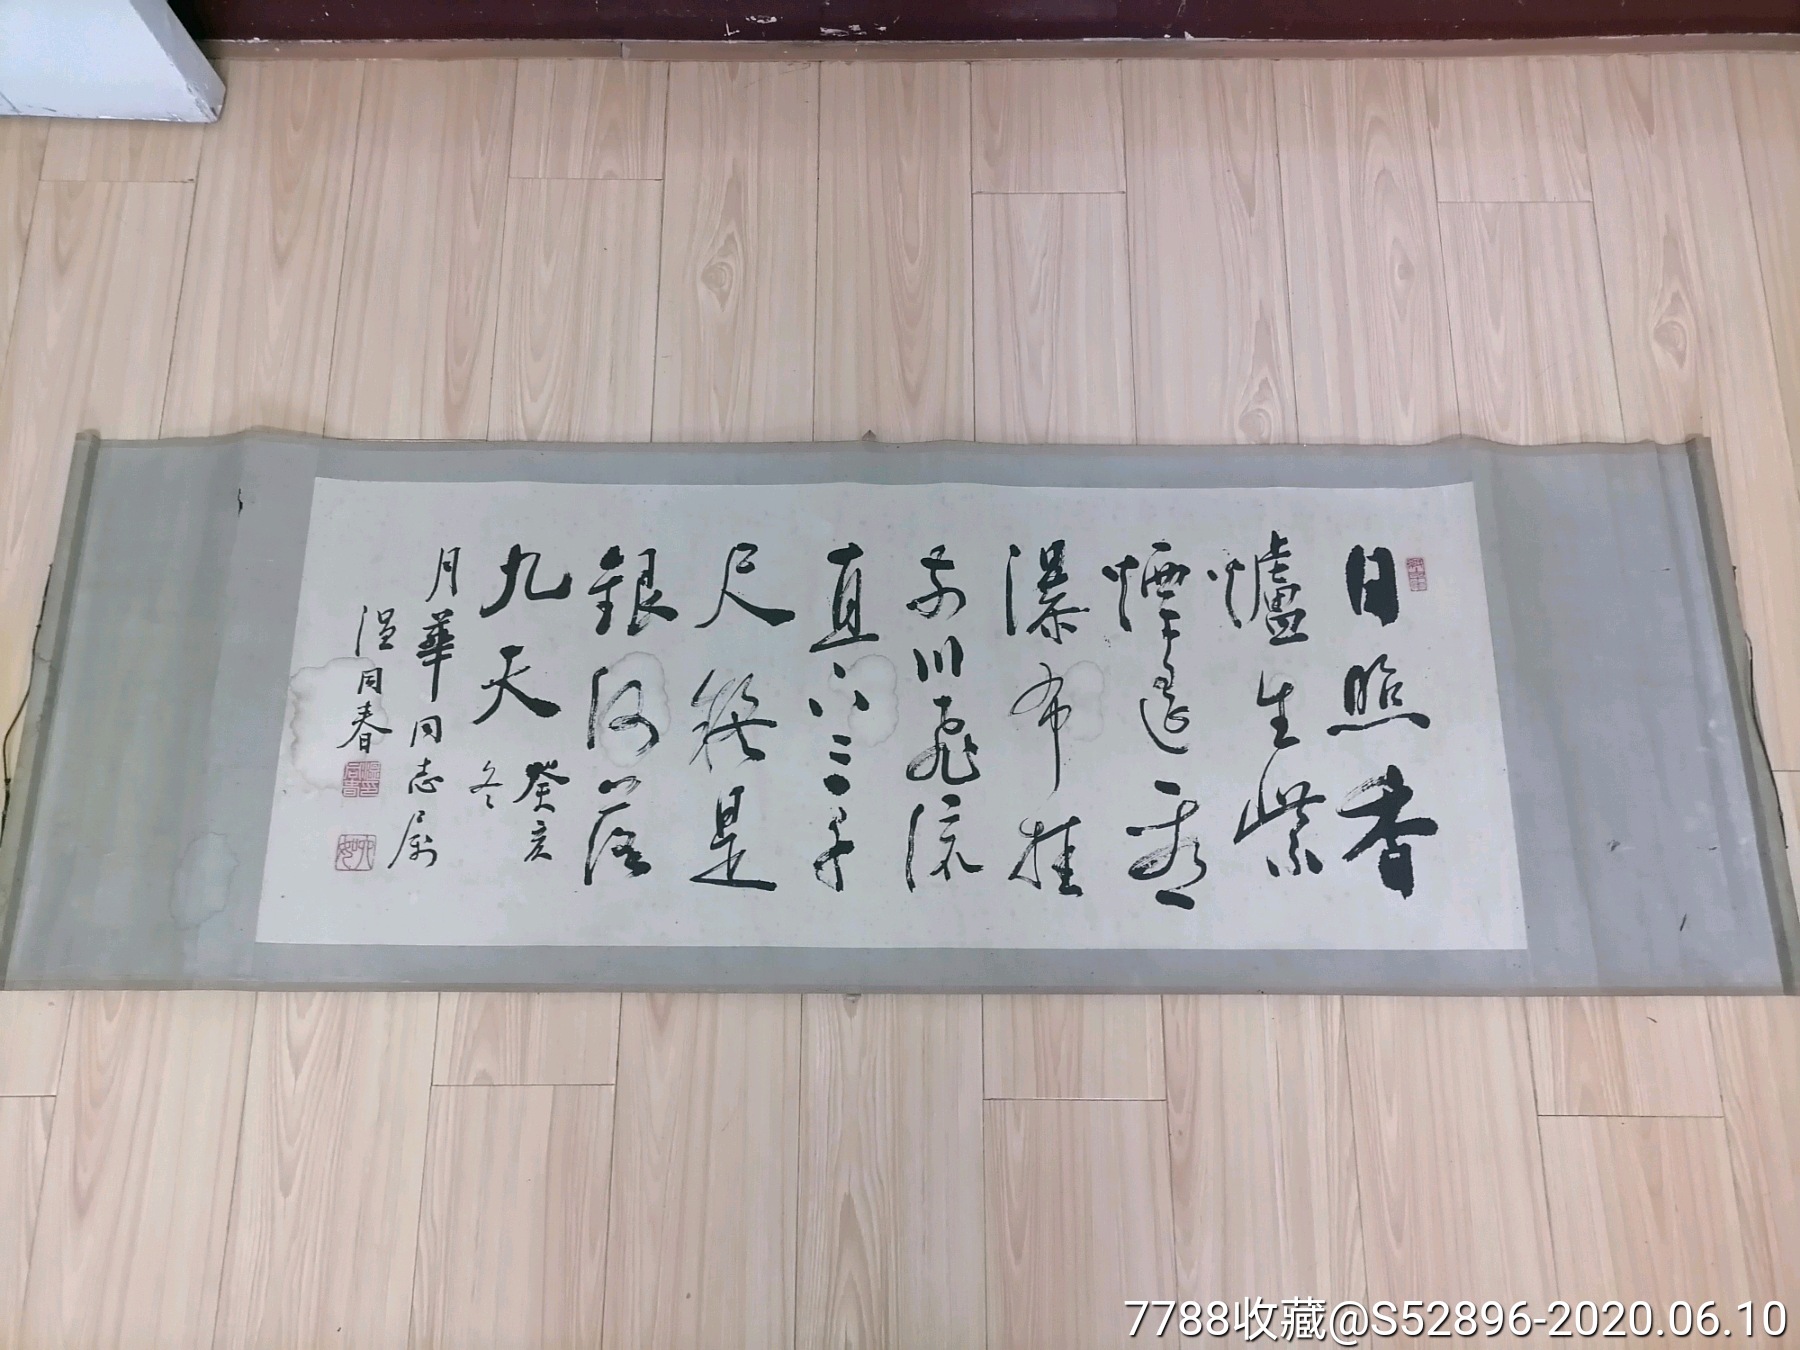 日照香
爐生紫
煙遥看
瀑布挂
前川飛流
直下三千
尺疑是
銀河落
九天 癸亥
冬
月華同志屬
温同春
7788收藏@S52896-2020.06.10